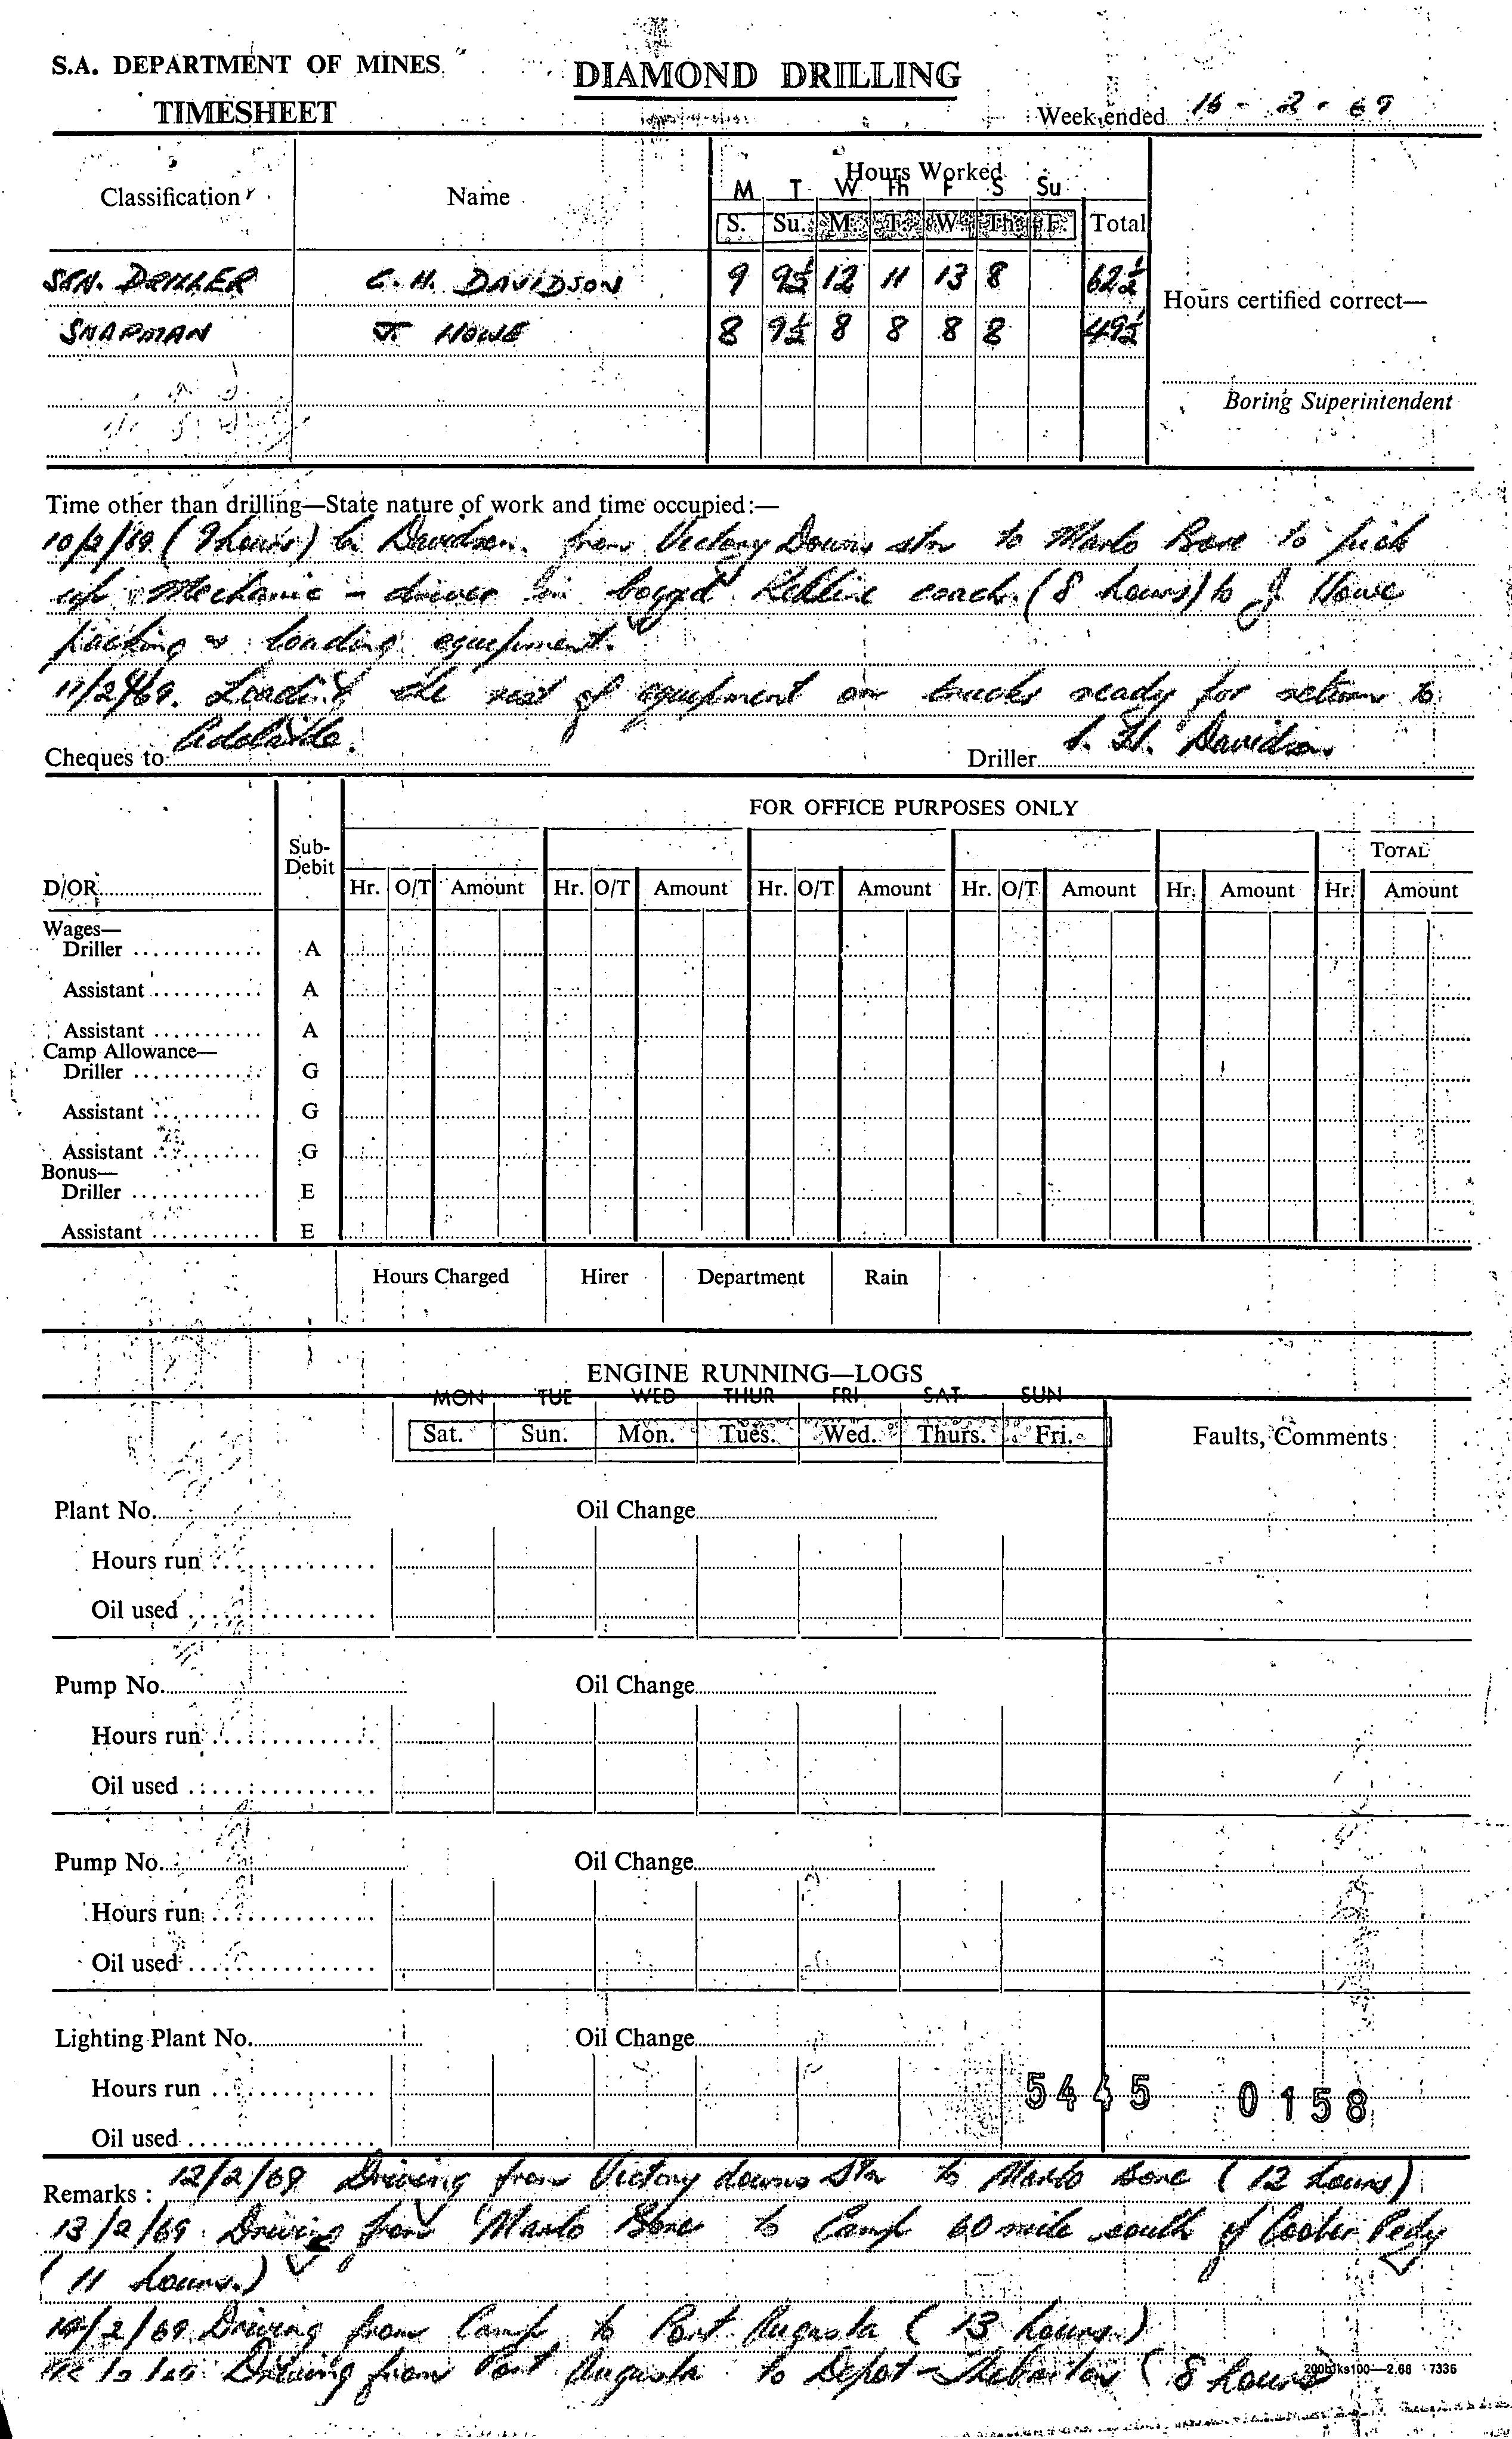 S.A. DEPARTMENT OF MINES
DIAMOND DRILLING
TIMESHEET
Week ended 16 - 2 - 69
Classification
Name
Hours Worked
M T W Th F S Su
S. Su. M. T. W. Th. F. Total
SEN. DRILLER C. H. DAVIDSON 9 9½ 12 11 13 8 62½
Hours certified correct—
SHARMAN J HOWE 8 9½ 8 8 8 8 49½
Boring Superintendent
Time other than drilling—State nature of work and time occupied:—
10/2/69 (9 hours) C Davidson. from Victory Downs stn to Marlo Bore to pick
up Mechanic - driver in bogged coach. (8 hours) J Howe
packing & loading equipment.
11/2/69. Loading the rest of equipment on trucks ready for return to
Adelaide.
Cheques to
Driller C. H. Davidson
FOR OFFICE PURPOSES ONLY
Sub-Debit
TOTAL
D/OR Hr. O/T Amount Hr. O/T Amount Hr. O/T Amount Hr. O/T Amount Hr. Amount Hr. Amount
Wages—
Driller A
Assistant A
Assistant A
Camp Allowance—
Driller G
Assistant G
Assistant G
Bonus—
Driller E
Assistant E
Hours Charged Hirer Department Rain
ENGINE RUNNING—LOGS
MON TUE WED THUR FRI SAT SUN
Sat. Sun. Mon. Tues. Wed. Thurs. Fri. Faults, Comments
Plant No. Oil Change
Hours run
Oil used
Pump No. Oil Change
Hours run
Oil used
Pump No. Oil Change
Hours run
Oil used
Lighting Plant No. Oil Change
Hours run
5445 0158
Oil used
Remarks : 12/2/69 Driving from Victory downs Stn to Marlo Bore (12 hours)
13/2/69. Driving from Marlo Bore to Camp 60 mile south of Coober Pedy
(11 hours.)
14/2/69 Driving from Camp to Port Augusta (13 hours.)
Driving from Port Augusta to Depot - Thebarton (8 hours
200blks100—2.66 7336